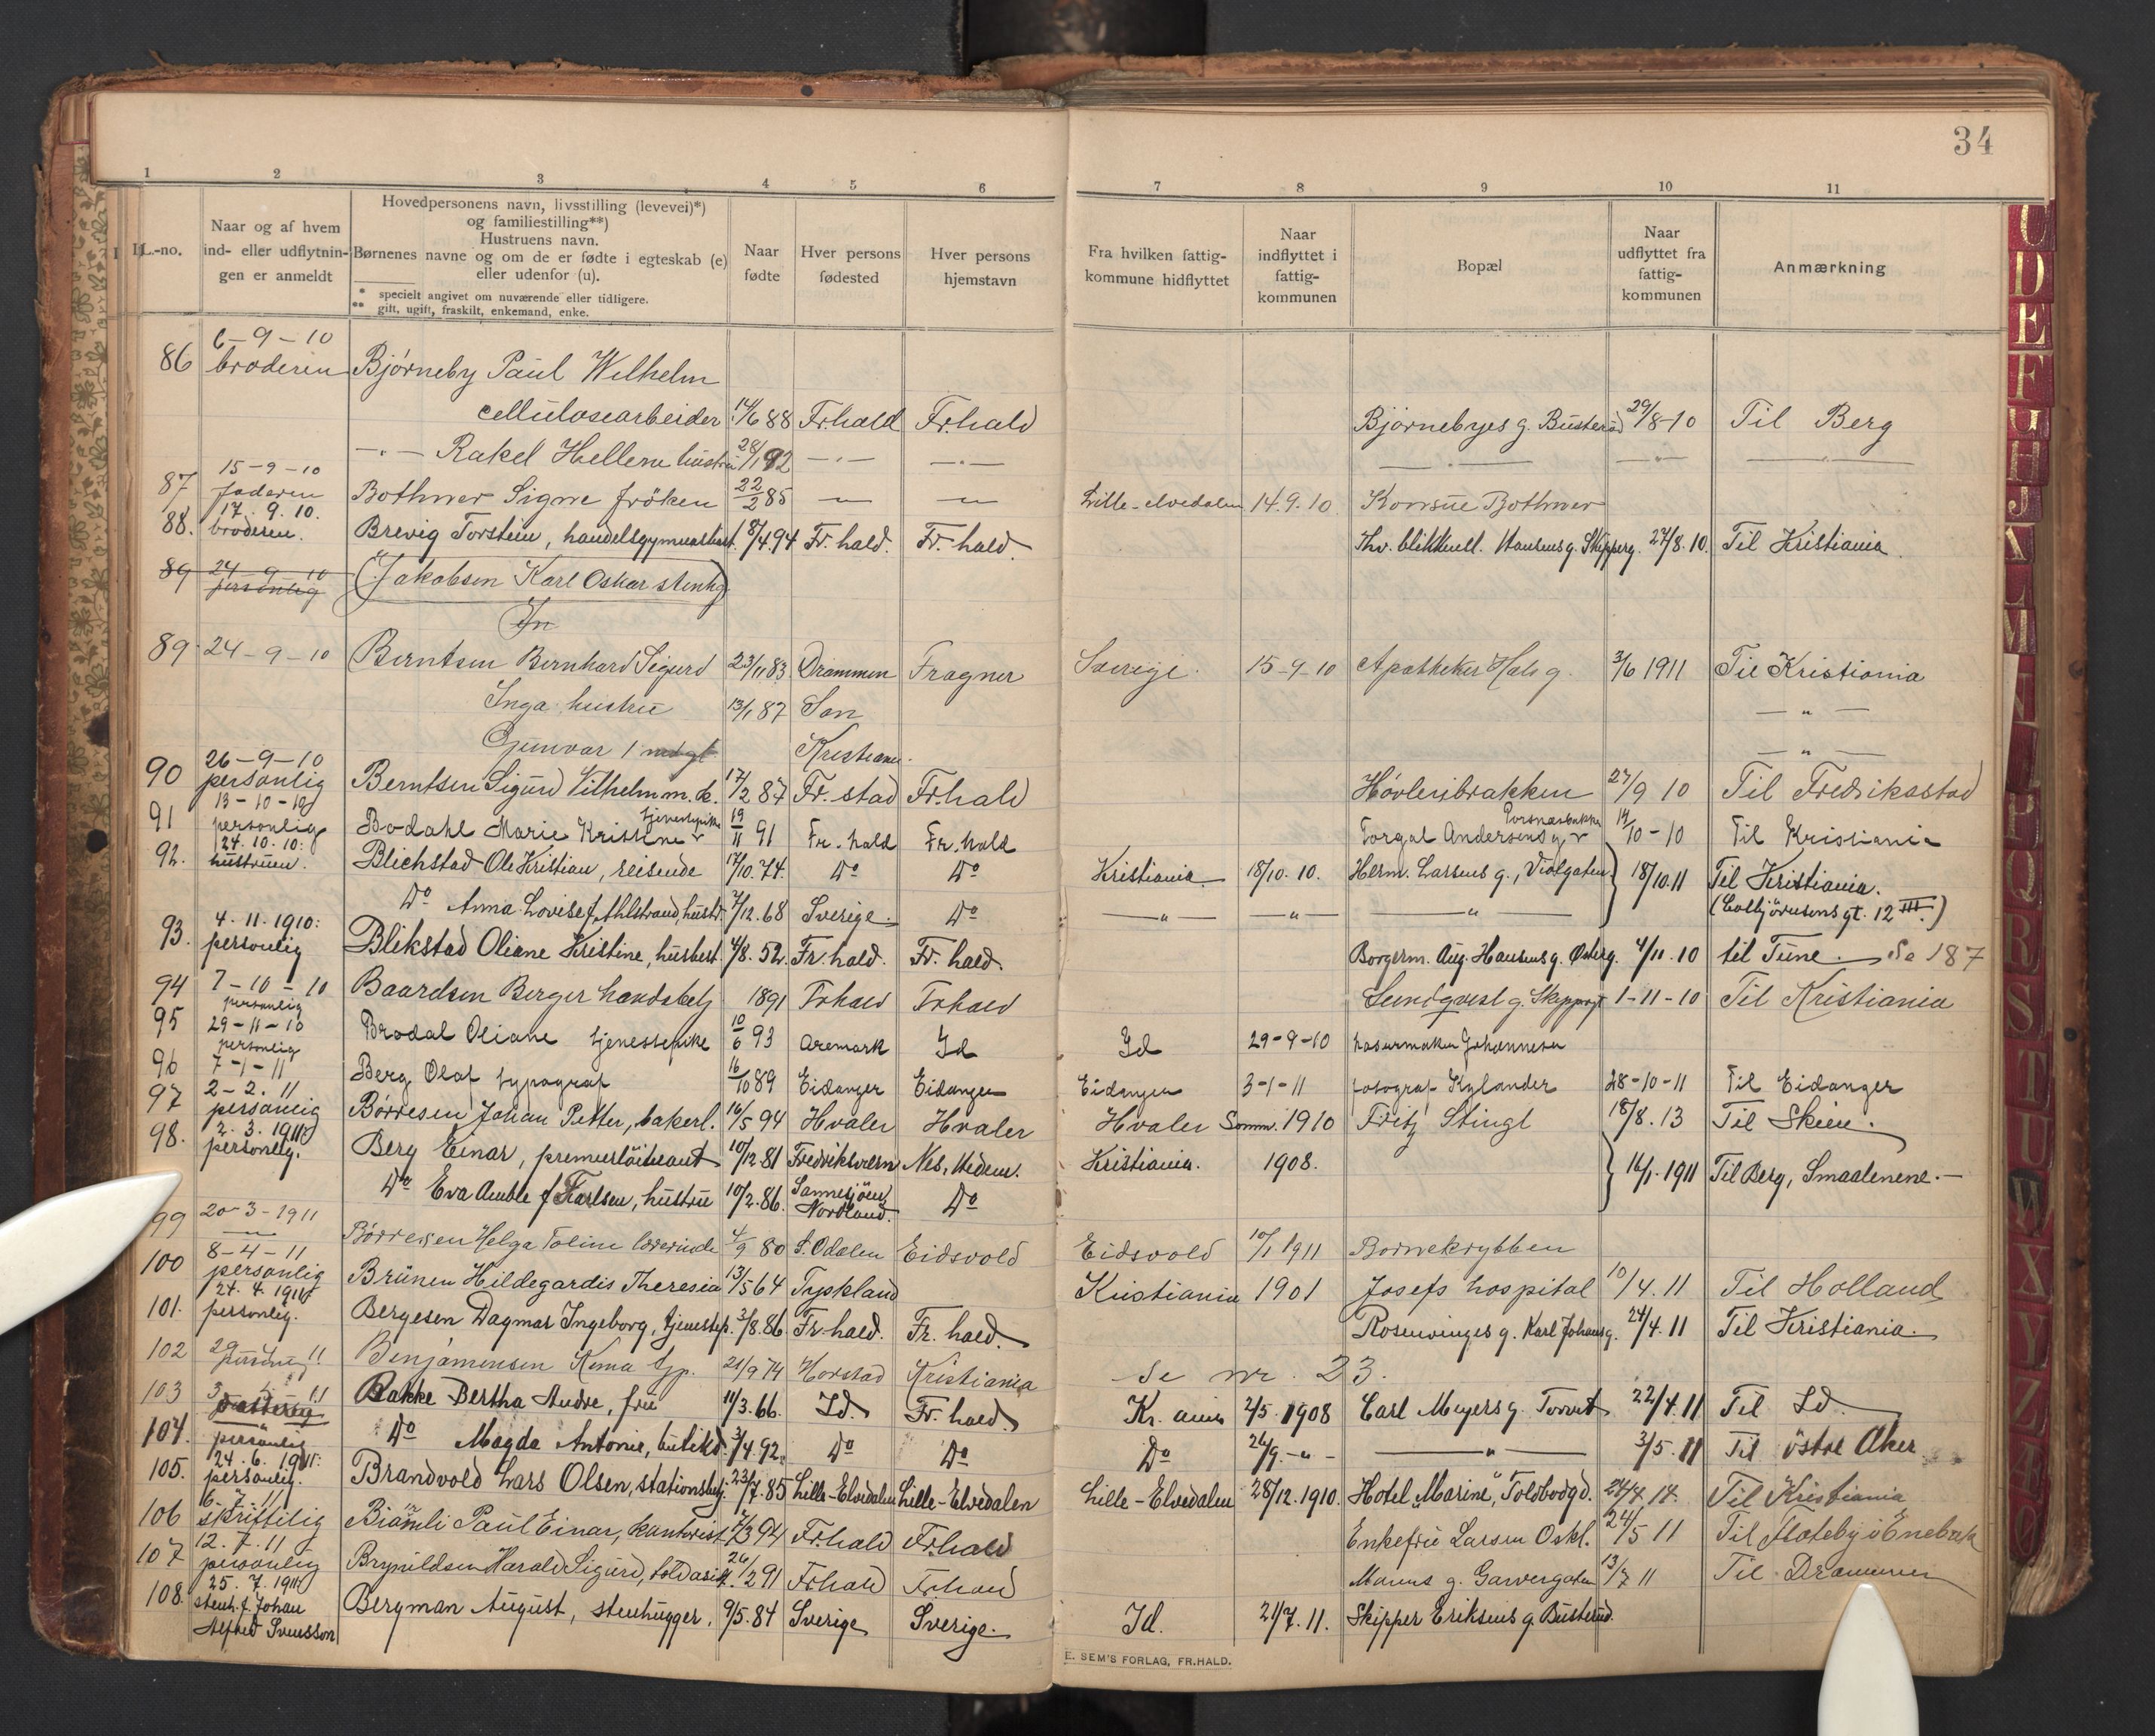 34
1 2 3 4 5 6 7 8 9 10 11
L.-no.
Naar og af hvem ind- eller udflytningen er anmeldt
Hovedpersonens navn, livsstilling (levevei)*) og familiestilling**)
Hustruens navn.
Børnenes navne og om de er fødte i egteskab (e) eller udenfor (u).
* specielt angivet om nuværende eller tidligere.
** gift, ugift, fraskilt, enkemand, enke.
Naar fødte
Hver persons fødested
Hver persons hjemstavn
Fra hvilken fattigkommune hidflyttet
Naar indflyttet i fattigkommunen
Bopæl
Naar udflyttet fra fattigkommunen
Anmærkning
6-9-10
86 broderen Bjørneby Paul Wilhelm
cellulosearbeider 14/6 88 Fr.hald Fr.hald Bjørnebyes g. Busterød 29/8-10 Til Berg
-"- Rakel Hellene hustru 28/1 92 -"- -"- -"- -"- -"-
87 15-9-10 faderen Bothner Signe frøken 22/2 85 — — Lille-elvedalen 14.9.10 Konsue Bothner
88. 17.9.10. broderen. Brevig Torstein, handelsgymnasiast. 8/4 94 Fr. hald. Fr. hald. Thv. blikkensl. Hansens g. Skipperg. 27/8.10. Til Kristiania.
89 24-9-10 personlig (Jakobsen Karl Oskar stenhg)
89 24-9-10 Berntsen Bernhard Sigurd 23/11 83 Drammen Fragner Sverige. 15-9-10 Apotheker Hals g. 3/6 1911 Til Kristiania
Inga hustru 13/1 87 Son -"-
Gunvor 1 Kristiania. -"-
90 26-9-10 personlig Berntsen Sigurd Vilhelm m. k. 17/2 87 Fr. stad Fr.hald Høvleribrakken 27/9 10 Til Fredriksstad
91 13-10-10 personlig Bodahl Marie Kristine tjenestepike 19/11 91 Fr. hald Fr. hald Torgal Andersens g. Porsnæsbakke 14/10-10 Til Kristiania
92. 24.10.10: hustruen. Blichstad Ole Kristian, reisende 17/10.74. Do Do Kristiania 18/10.10. Herm. Larsens g., Violgaten 18/10.11 Til Kristiania.
Do Anna Lovise f. Ahlstrand, hustr. 7/12.68 Sverige. Do -"- -"- -"- (Colbjörnsens gt. 12 III.)
93. 4.11.1910: personlig Blikstad Oliane Kristine, husbest. 4/8.52. Fr. hald. Fr. hald. Borgerm. Aug. Hansens g. Østerg. 4/11.10 til Tune. Se 187
94 7-10-10 personlig Baardsen Berger handelsbetj 1891 Frhald Frhald Lundqvist g. Skippergt 1-11-10 Til Kristiania
95 29-11-10 personlig Brodal Oliane tjenestepike 10/6 93 Aremark Id Id 29-9-10 Johannesen
96 7-1-11 Berg Olaf typograf 16/10 89 Eidanger Eidanger Eidanger 3-1-11 fotograf Kylander 28-10-11 Til Eidanger
97 2-2.11 personlig Børresen Johan Petter, bakerl. 16/5 94 Hvaler Hvaler Hvaler Somm. 1910 Fritz Stingl 18/8.13 Til Skien.
98. 2.3.1911: personlig. Berg Einar, premierløitnant 10/12.81 Fredriksværn Nes, Hedem. Kristiania. 1908. 16/1.1911 Til Berg, Smaalenene.
Do Eva Amble f. Karlsen, hustru 10/2.86. Sannesjøen Nordland. Do
99 20-3-1911 Børresen Helga Toline lærerinde 4/9 80 S. Odalen Eidsvold Eidsvold 10/1 1911 Bornekrybben
100 8-4-11 personlig Brünen Hildegardis Theresia 13/5 64 Tyskland Kristiania 1901 Josefs hospital 10/4.11 Til Holland
101. 24.4.1911 personlig. Bergesen Dagmar Ingeborg, tjenestep. 3/8.86 Fr.hald. Fr. hald. Rosenvinges g. Karl Johansg. 24/4.11 Til Kristiania.
102 personlig Benjamensen Kema tjp. 21/9 74 Horstad Kristiania Se nr. 23.
103 3-5-11 Bakke Bertha Andre, frü 11/3.66. Id. Fr. hald. Kr.ania 2/5.1908 Carl Meyers g. Torvet 22/4.11 Til Id
104. personlig Do Magda Antonie, butikd. 3/4.92. Do Do Do 26/9.-"- -"- 3/5.11 Til østre Aker.
105. 24.6.1911: personlig. Brandvold Lars Olsen, stationsbetj. 23/7.85 Lille-Elvedalen Lille-Elvedalen Lille-Elvedalen 28/12.1910. Hotel "Marine", Toldbodgd. 24/4.14. Til Kristiania
106 6.7.11 skriftilig Paul Einar, kontorist 7/3 94 Fr.hald Fr.hald Enkefru Larsen Oskl. 24/5 11 Til Flateby i Enebak
107 12.7.11 personlig Brynildsen Harald Sigurd, toldasist. 26/2 91 Frhald Frhald g. Garvergaten 13/7 11 Til Drammen
108. 25.7.1911 stenh. f. Johan Alfred Svensson Bergman August, stenhugger, 9/5.84 Sverige Sverige. Id. 21/7.11. Skipper Eriksens g. Busterud.
E. SEM'S FORLAG, FR.HALD.
C D E F G H J K L M N O P Q R S T U W X Y Z Æ Ø